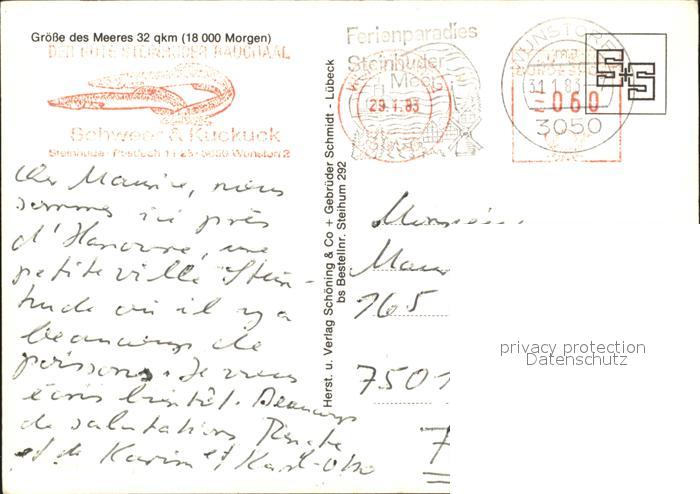 Größe des Meeres 32 qkm (18 000 Morgen)
DER GUTE STEINHUDER RAUCHAAL
Schweer & Kuckuck
Steinhude · Postfach 11 25 · 3050 Wunstorf 2
Ferienparadies
Steinhuder
Meer
29.1.83
WUNSTORF
31.1.83
DEUTSCHE BUNDESPOST
060
3050
S+S
Cher Maurice, nous
sommes ici près
d'Hanovre, une
petite ville Stein-
hude où il y a
beaucoup de
poissons. Je vous
écris bientôt. Beaucoup
de salutations Renate
et de Karin et Karl-Otto
Herst. u. Verlag Schöning & Co + Gebrüder Schmidt - Lübeck
bs Bestellnr. Steihum 292
Monsieur
Mau
165
7501
7
privacy protection
Datenschutz